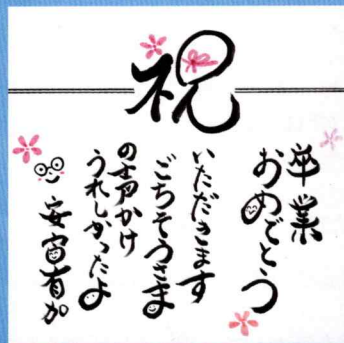 祝
卒業
おめでとう
いただきます
ごちそうさま
の声かけ
うれしかったよ